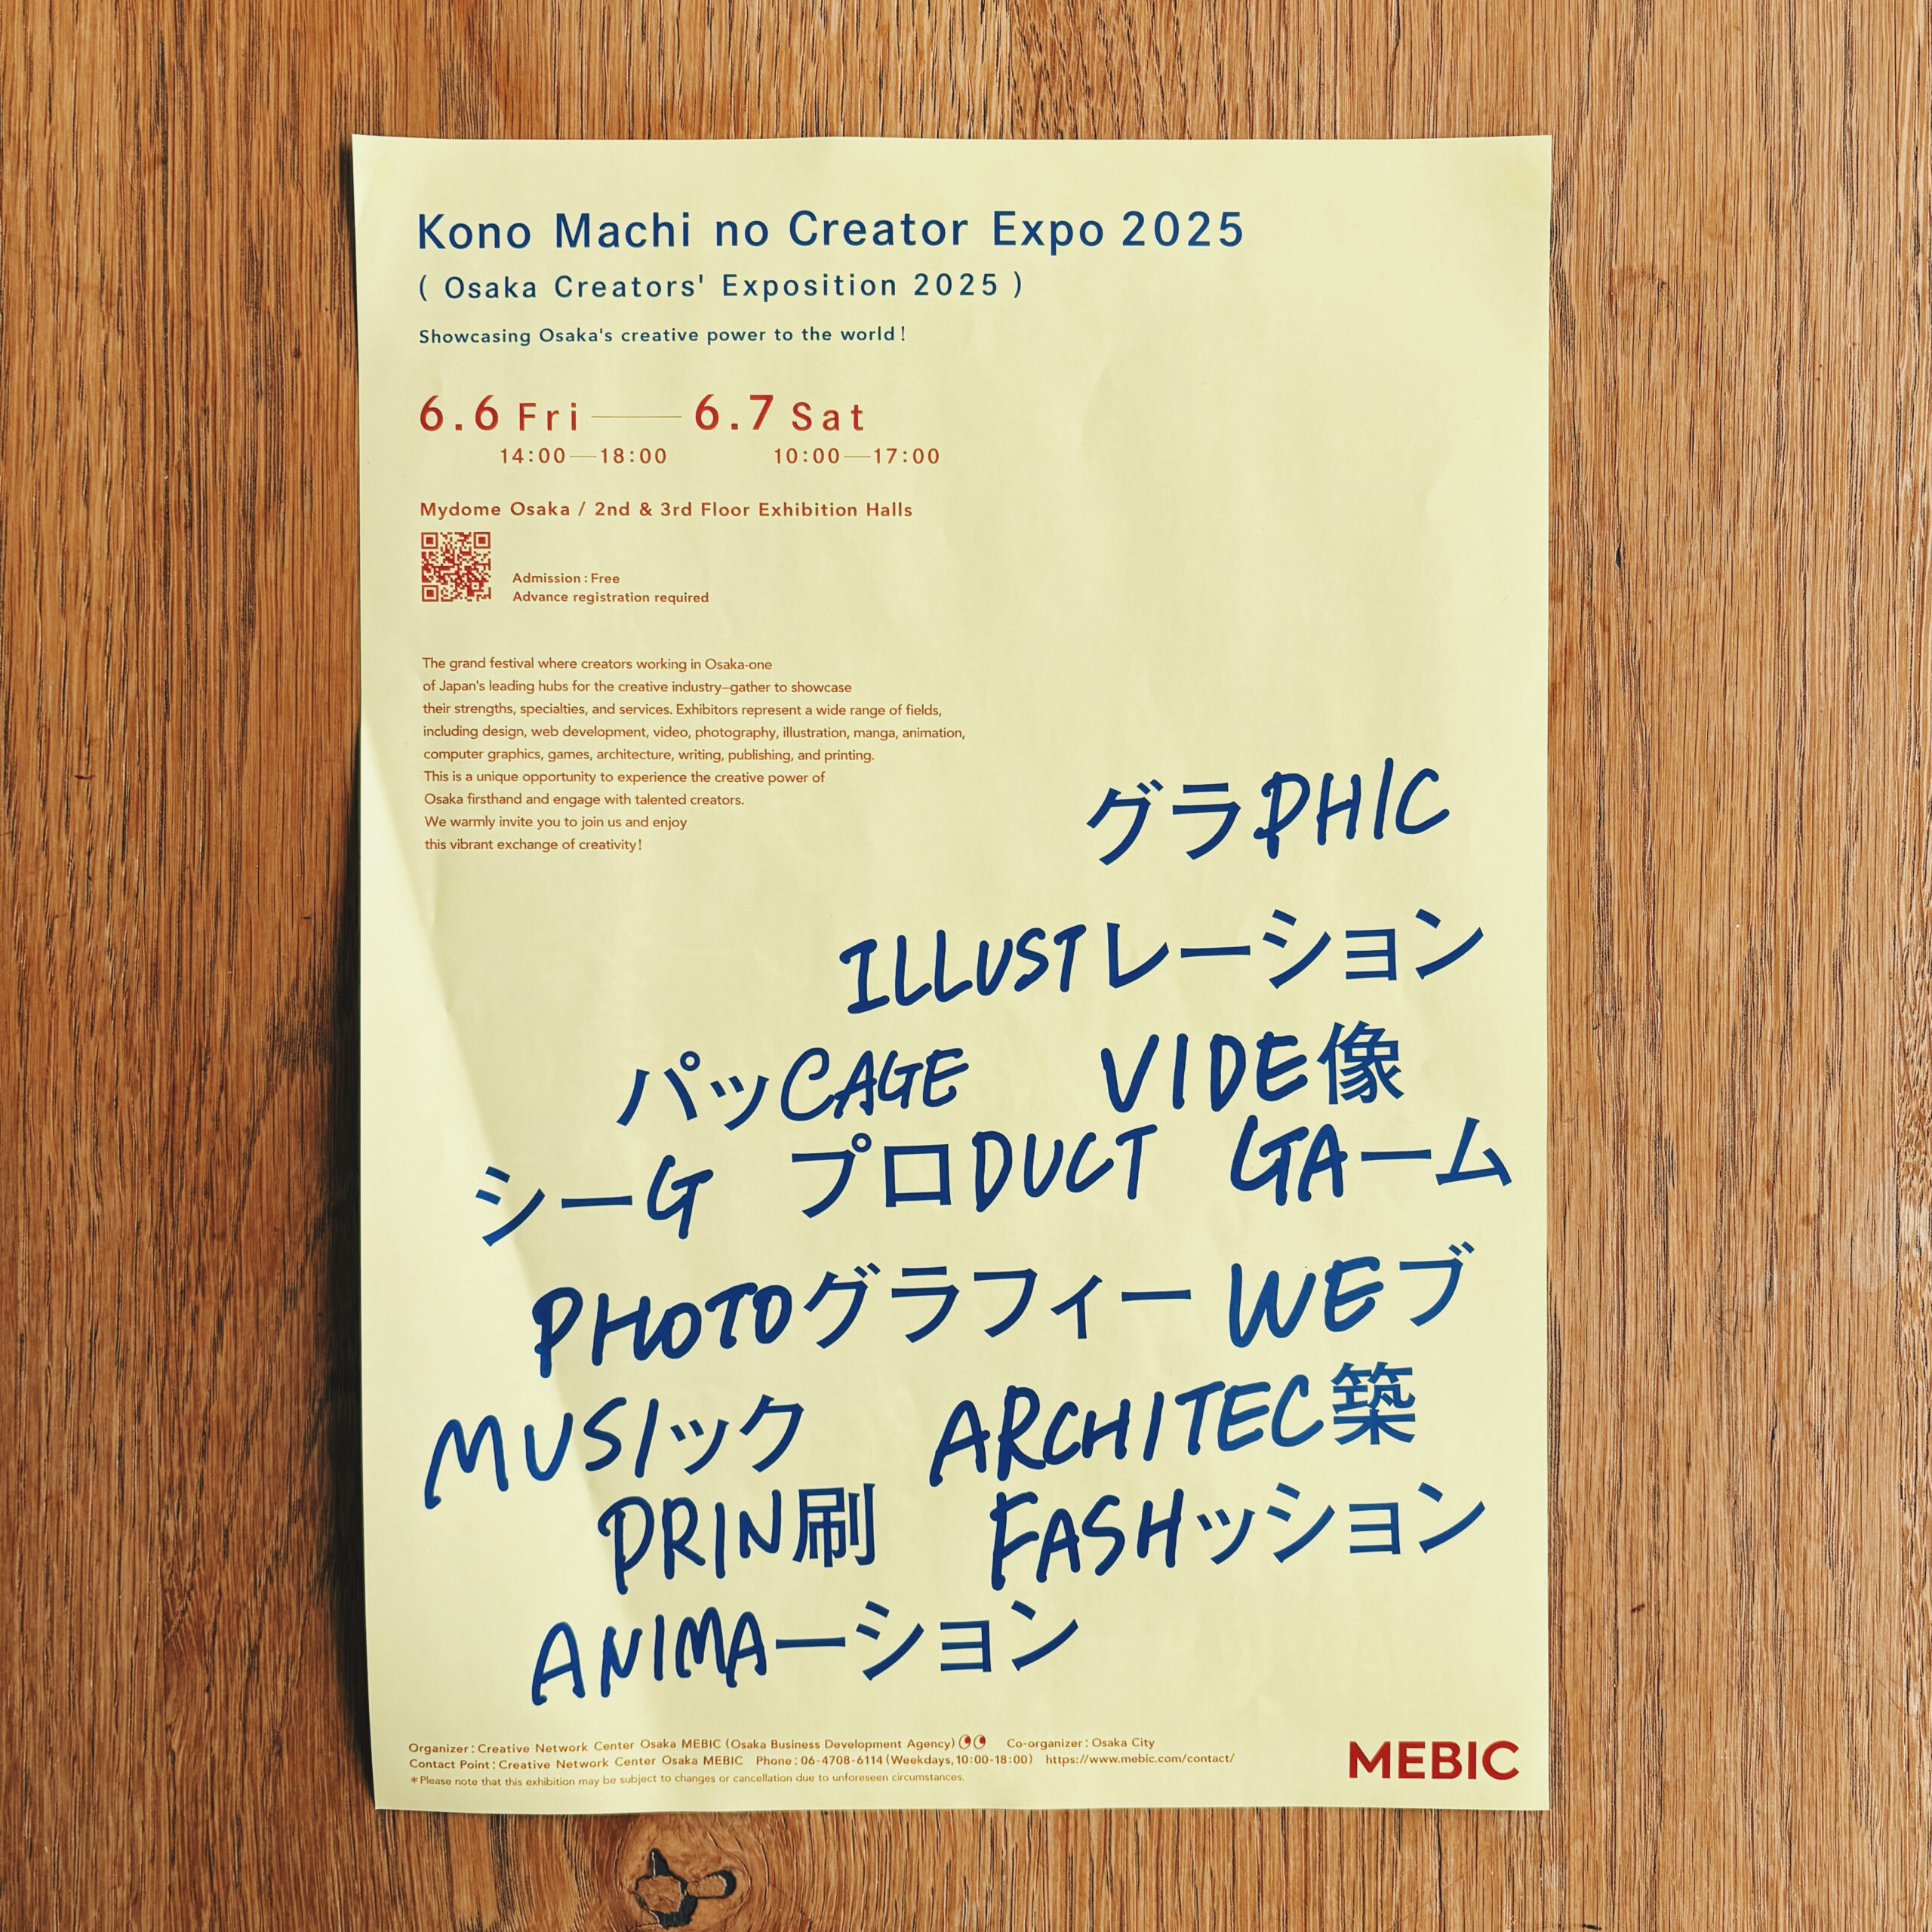 Kono Machi no Creator Expo 2025
( Osaka Creators' Exposition 2025 )
Showcasing Osaka's creative power to the world!
6.6 Fri — 6.7 Sat
14:00—18:00 10:00—17:00
Mydome Osaka / 2nd & 3rd Floor Exhibition Halls
Admission : Free
Advance registration required
The grand festival where creators working in Osaka-one
of Japan's leading hubs for the creative industry–gather to showcase
their strengths, specialties, and services. Exhibitors represent a wide range of fields,
including design, web development, video, photography, illustration, manga, animation,
computer graphics, games, architecture, writing, publishing, and printing.
This is a unique opportunity to experience the creative power of
Osaka firsthand and engage with talented creators.
We warmly invite you to join us and enjoy
this vibrant exchange of creativity!
グラPHIC
ILLUSTレーション
パッCAGE VIDE像
シーG プロDUCT GAーム
PHOTOグラフィー WEブ
MUSIック ARCHITEC築
PRIN刷 FASHッション
ANIMAーション
Organizer : Creative Network Center Osaka MEBIC (Osaka Business Development Agency) Co-organizer : Osaka City
Contact Point : Creative Network Center Osaka MEBIC Phone : 06-4708-6114 (Weekdays, 10:00-18:00) https://www.mebic.com/contact/
*Please note that this exhibition may be subject to changes or cancellation due to unforeseen circumstances.
MEBIC